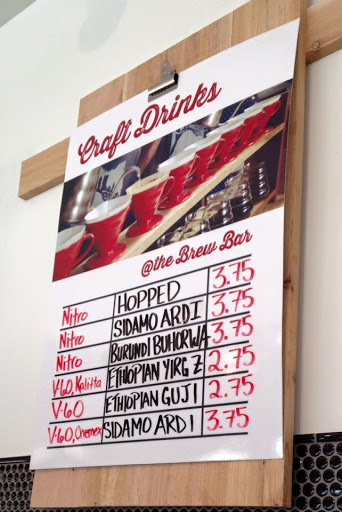 Craft Drinks
@the Brew Bar
Nitro HOPPED 3.75
Nitro SIDAMO ARDI 3.75
Nitro BURUNDI BUHORWA 3.75
V-60, Kalitta ETHIOPIAN YIRG Z 2.75
V-60 ETHIOPIAN GUJI 2.75
V-60, Chemex SIDAMO ARDI 3.75